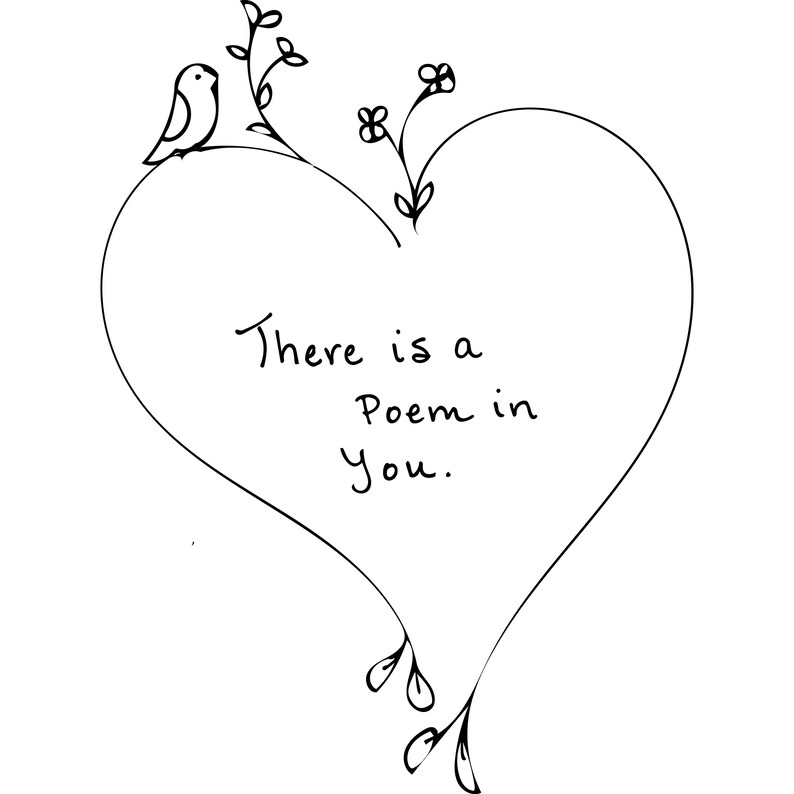 There is a
Poem in
You.